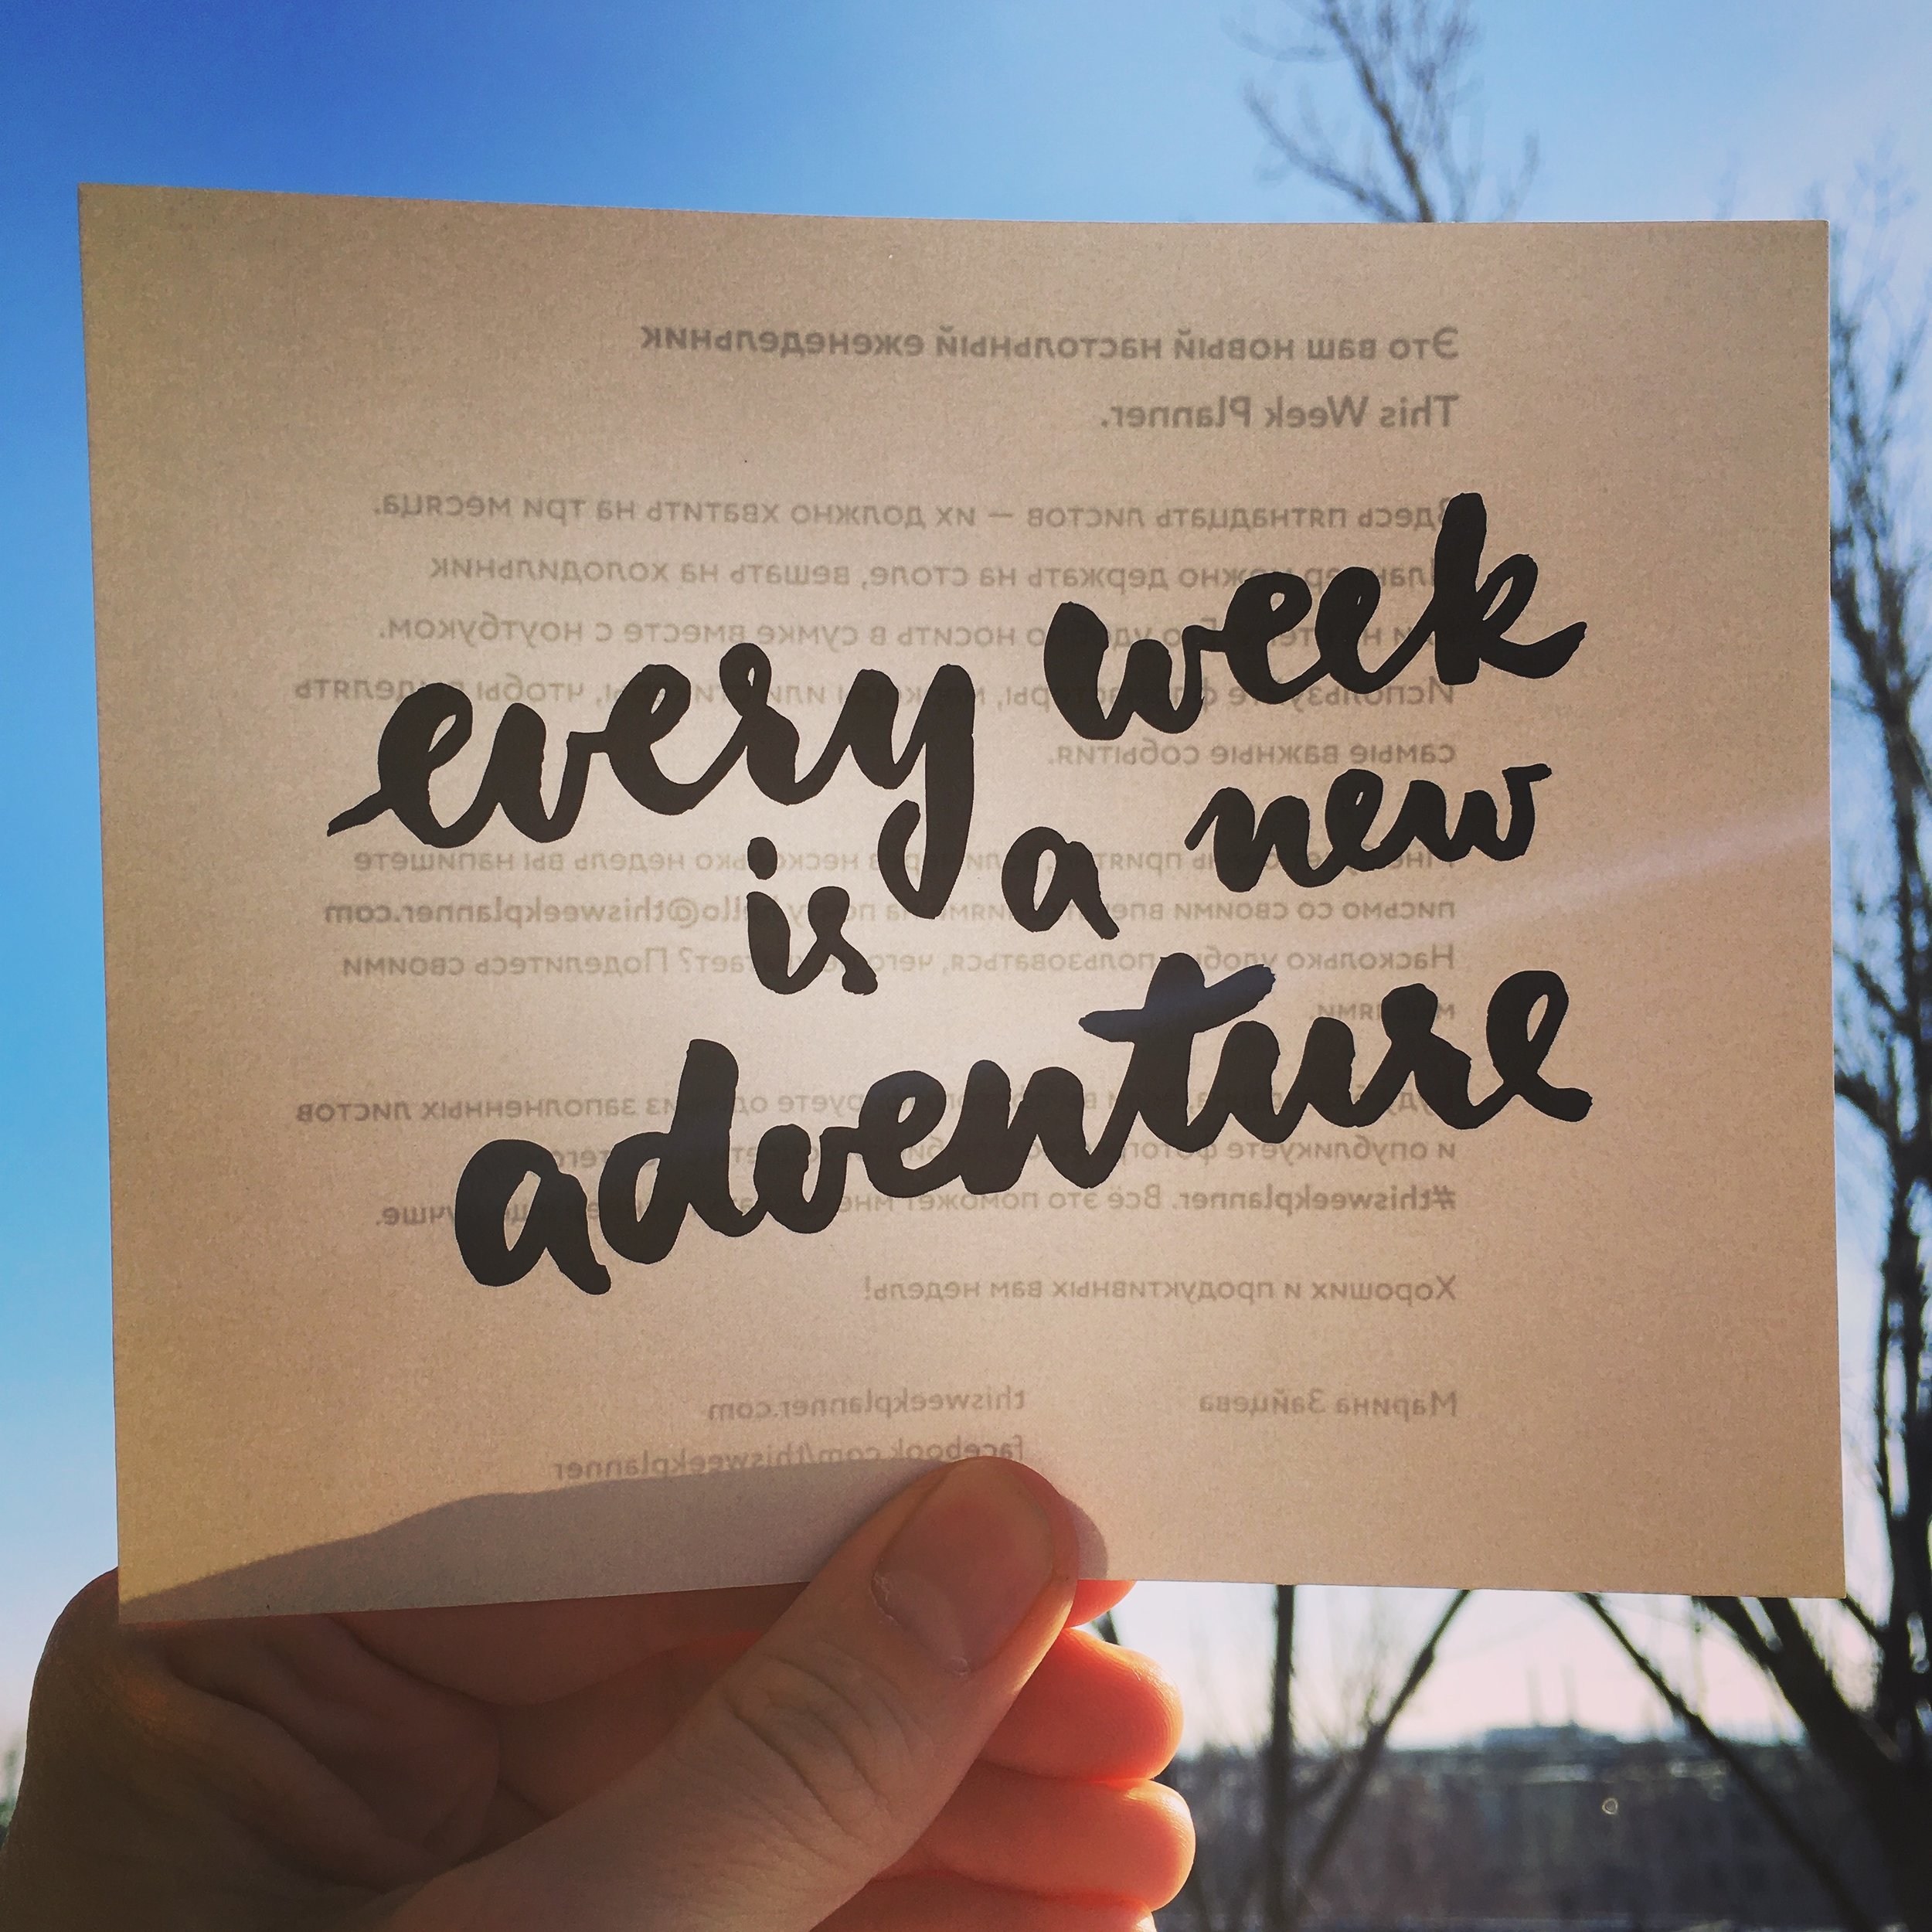 every week
is a new
adventure
Это ваш новый настольный еженедельник
This Week Planner.
Здесь пятнадцать листов — их должно хватить на три месяца.
можно держать на столе, вешать на холодильник
носить в сумке вместе с ноутбуком.
или чтобы выделять
самые важные события.
приятно, если через несколько недель вы напишете
письмо со своими впечатлениями на почту hello@thisweekplanner.com
Насколько удобно пользоваться, чего не хватает? Поделитесь своими
мыслями.
один из заполненных листов
и опубликуете
#thisweekplanner. Всё это поможет мне лучше.
Хороших и продуктивных вам недель!
Марина Зайцева thisweekplanner.com
facebook.com/thisweekplanner